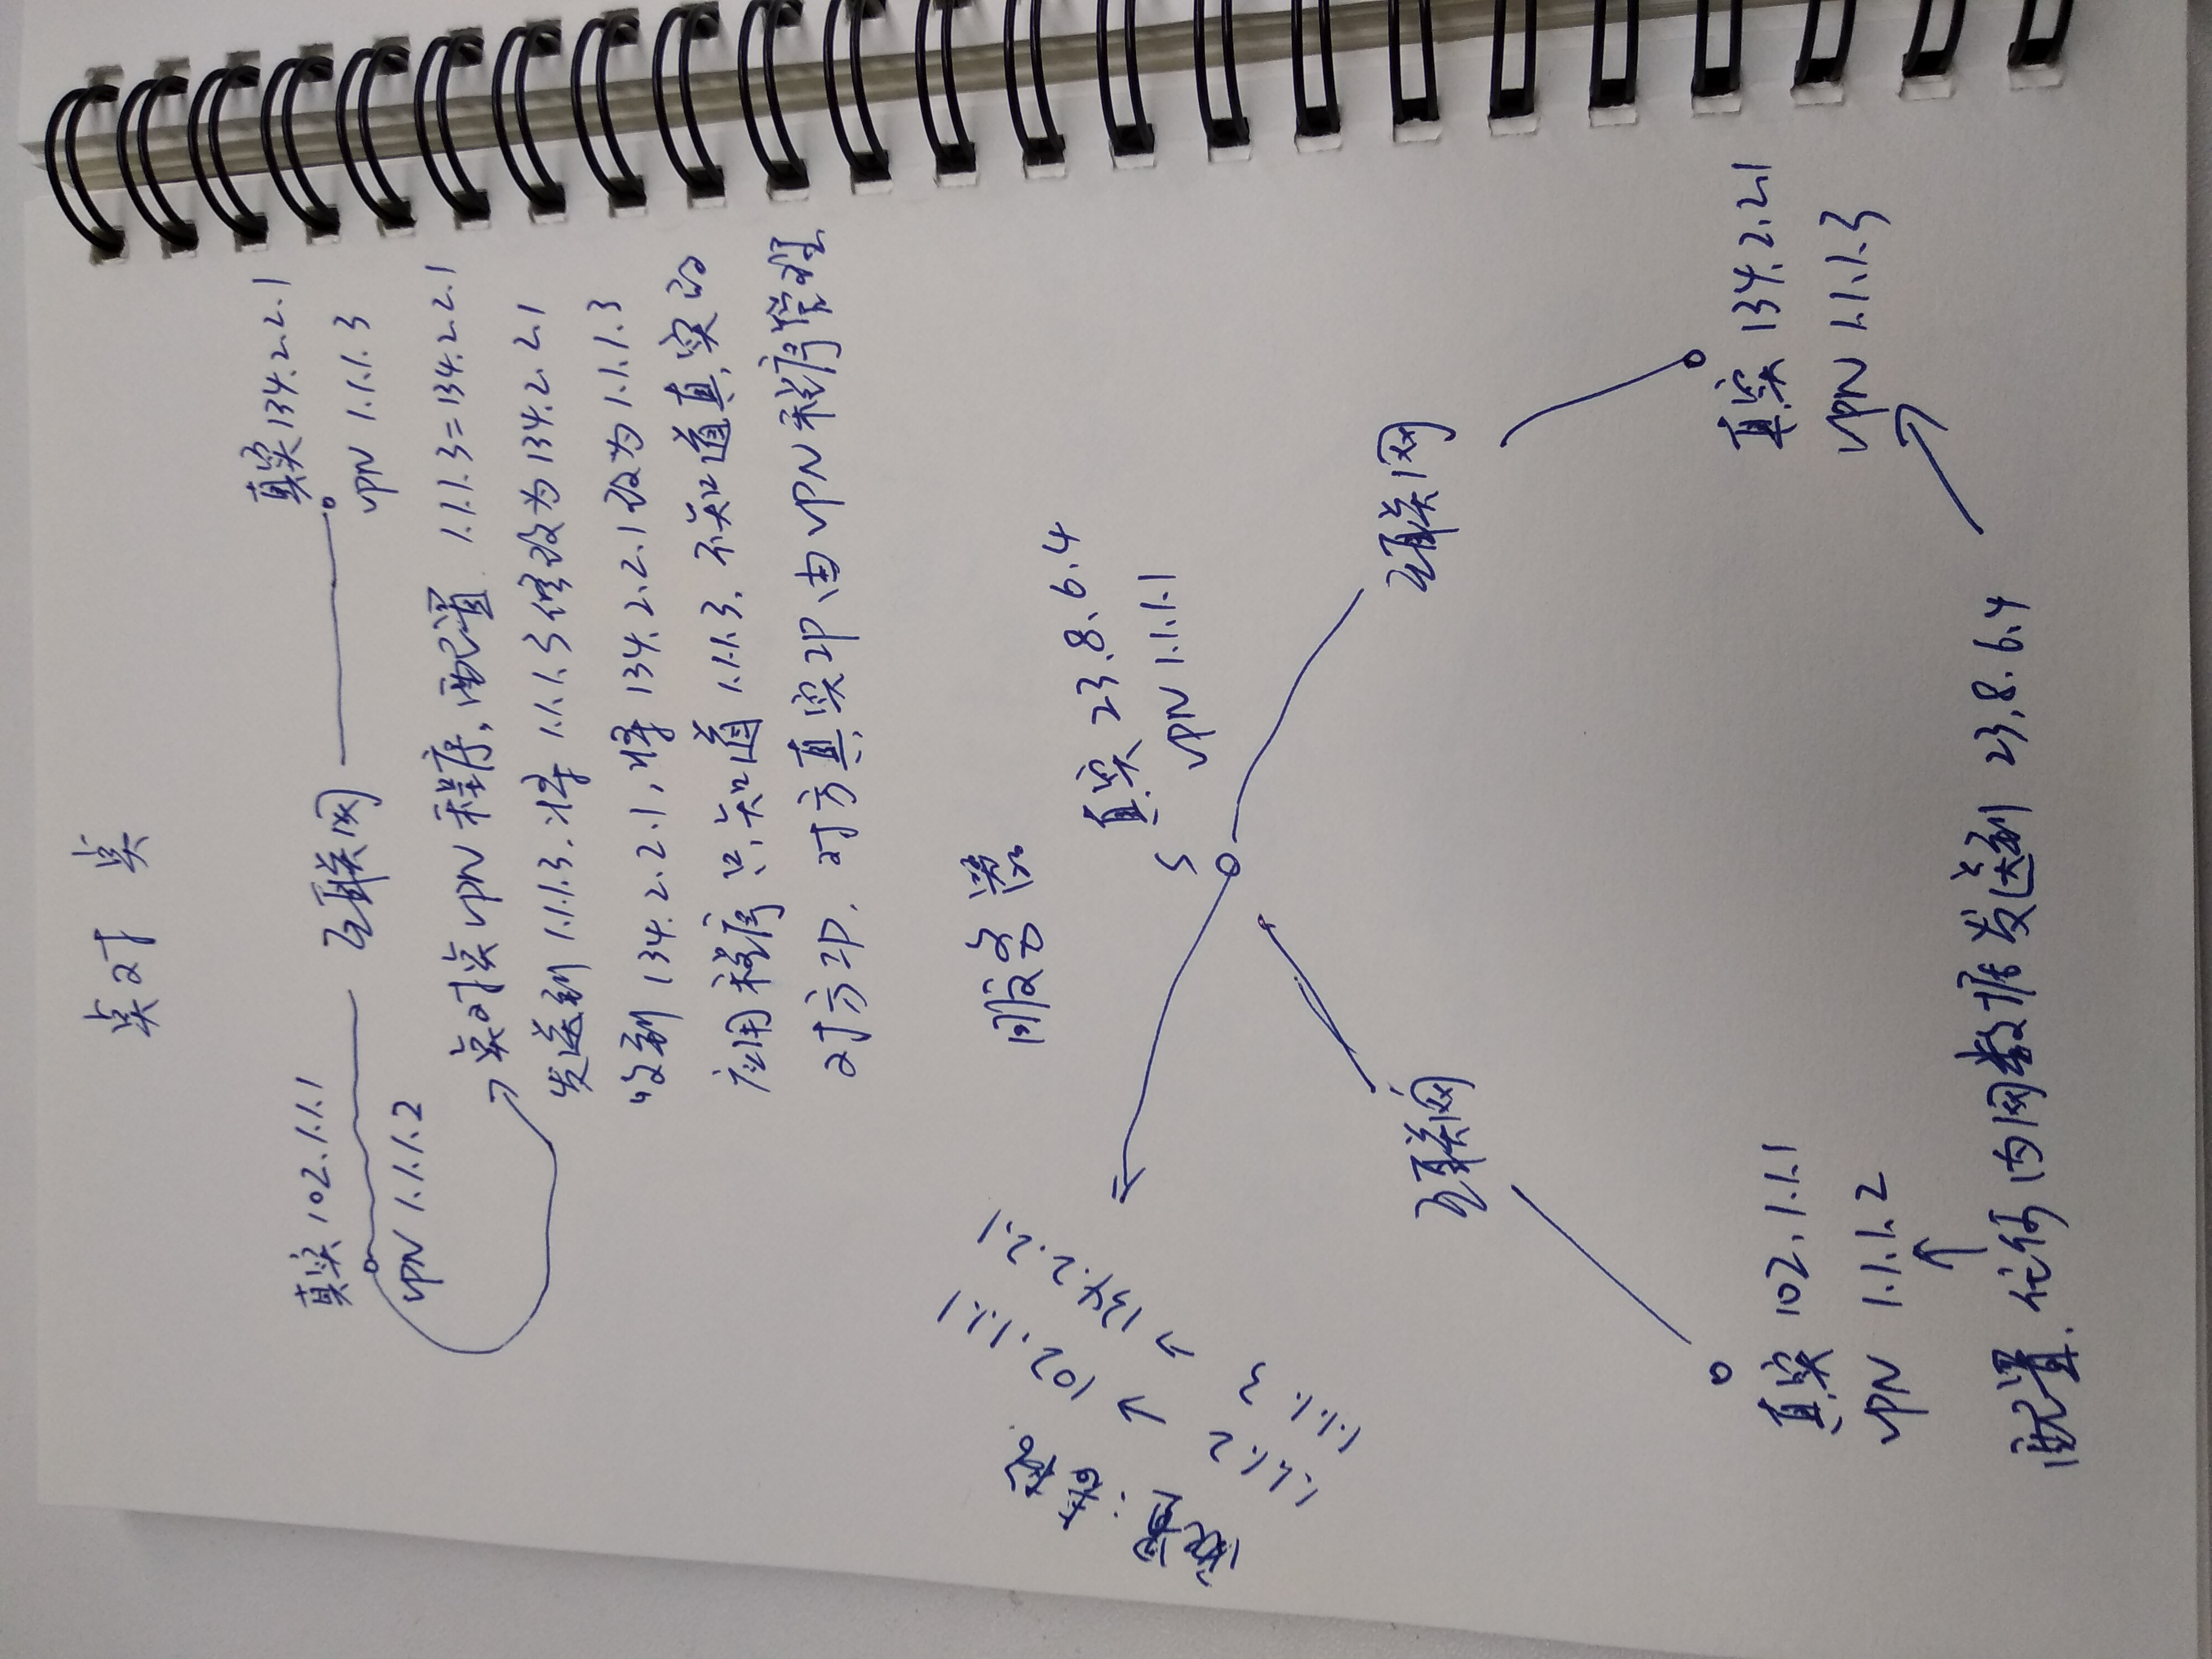 点对 点
真实 102.1.1.1
VPN 1.1.1.2
互联网
真实 134.2.2.1
VPN 1.1.1.3
点对点 VPN 程序, 配置 1.1.1.3=134.2.2.1
发送到 1.1.1.3. 将 1.1.1.3 修改为 134.2.2.1
收到 134.2.2.1, 将 134.2.2.1 改为 1.1.1.3
应用程序只知道 1.1.1.3. 不知道真实的
对方IP. 对方真实IP由VPN程序管理
服务器
配置:表格.
1.1.1.2 → 102.1.1.1
1.1.1.3 → 134.2.2.1
S
真实 23.8.6.4
VPN 1.1.1.1
互联网
互联网
真实 102.1.1.1
VPN 1.1.1.2
真实 134.2.2.1
VPN 1.1.1.3
配置. 任何内网数据发送到 23.8.6.4